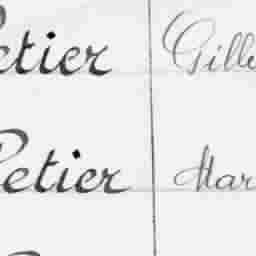 etier Gille
Petier Mar